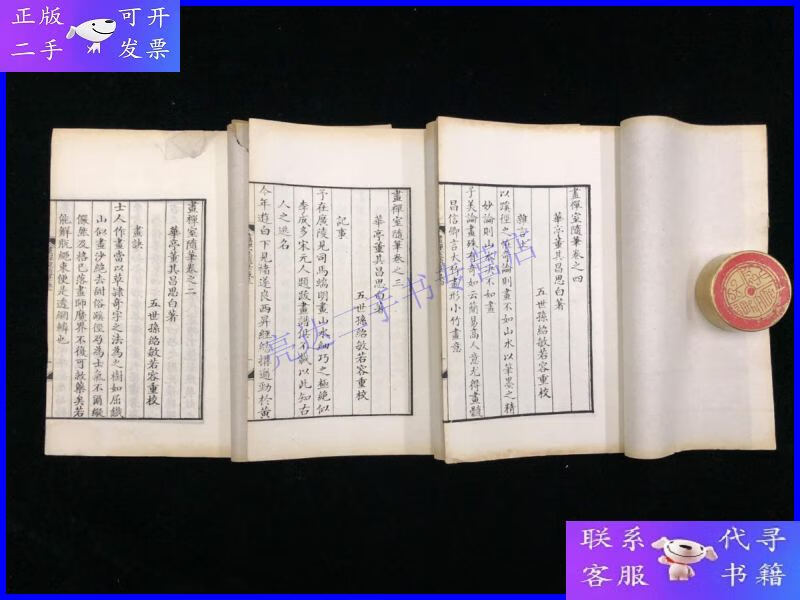 正版 可开
二手 发票
畫禪室隨筆卷之四
華亭董其昌思白著
五世孫紹敏若容重校
雜言上
以蹊徑之奇怪論則畫不如山水以筆墨之精
妙論則山水決不如畫
子美論畫殊有奇如云簡易高人意尤得畫髓
昌信卿言大竹畫形小竹畫意
畫禪室隨筆卷之三
華亭董其昌思白著
五世孫紹敏若容重校
記事
予在廣陵見司馬端明畫山水細巧之極絶似
李成多宋元人題跋畫譜俱不載以此知古
人之逃名
今年遊白下見褚遂良西昇經結構遒勁於黃
畫禪室隨筆卷之二
華亭董其昌思白著
五世孫紹敏若容重校
畫訣
士人作畫當以草隸奇字之法為之樹如屈鐵
山似畫沙絶去甜俗蹊徑乃為士氣不爾縱
儼然及格已落畫師魔界不復可救藥矣若
能解脫繩束便是透網鱗也
联系 代寻
客服 书籍